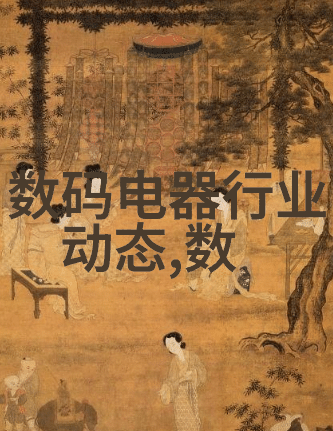 数码电器行业
动态,数